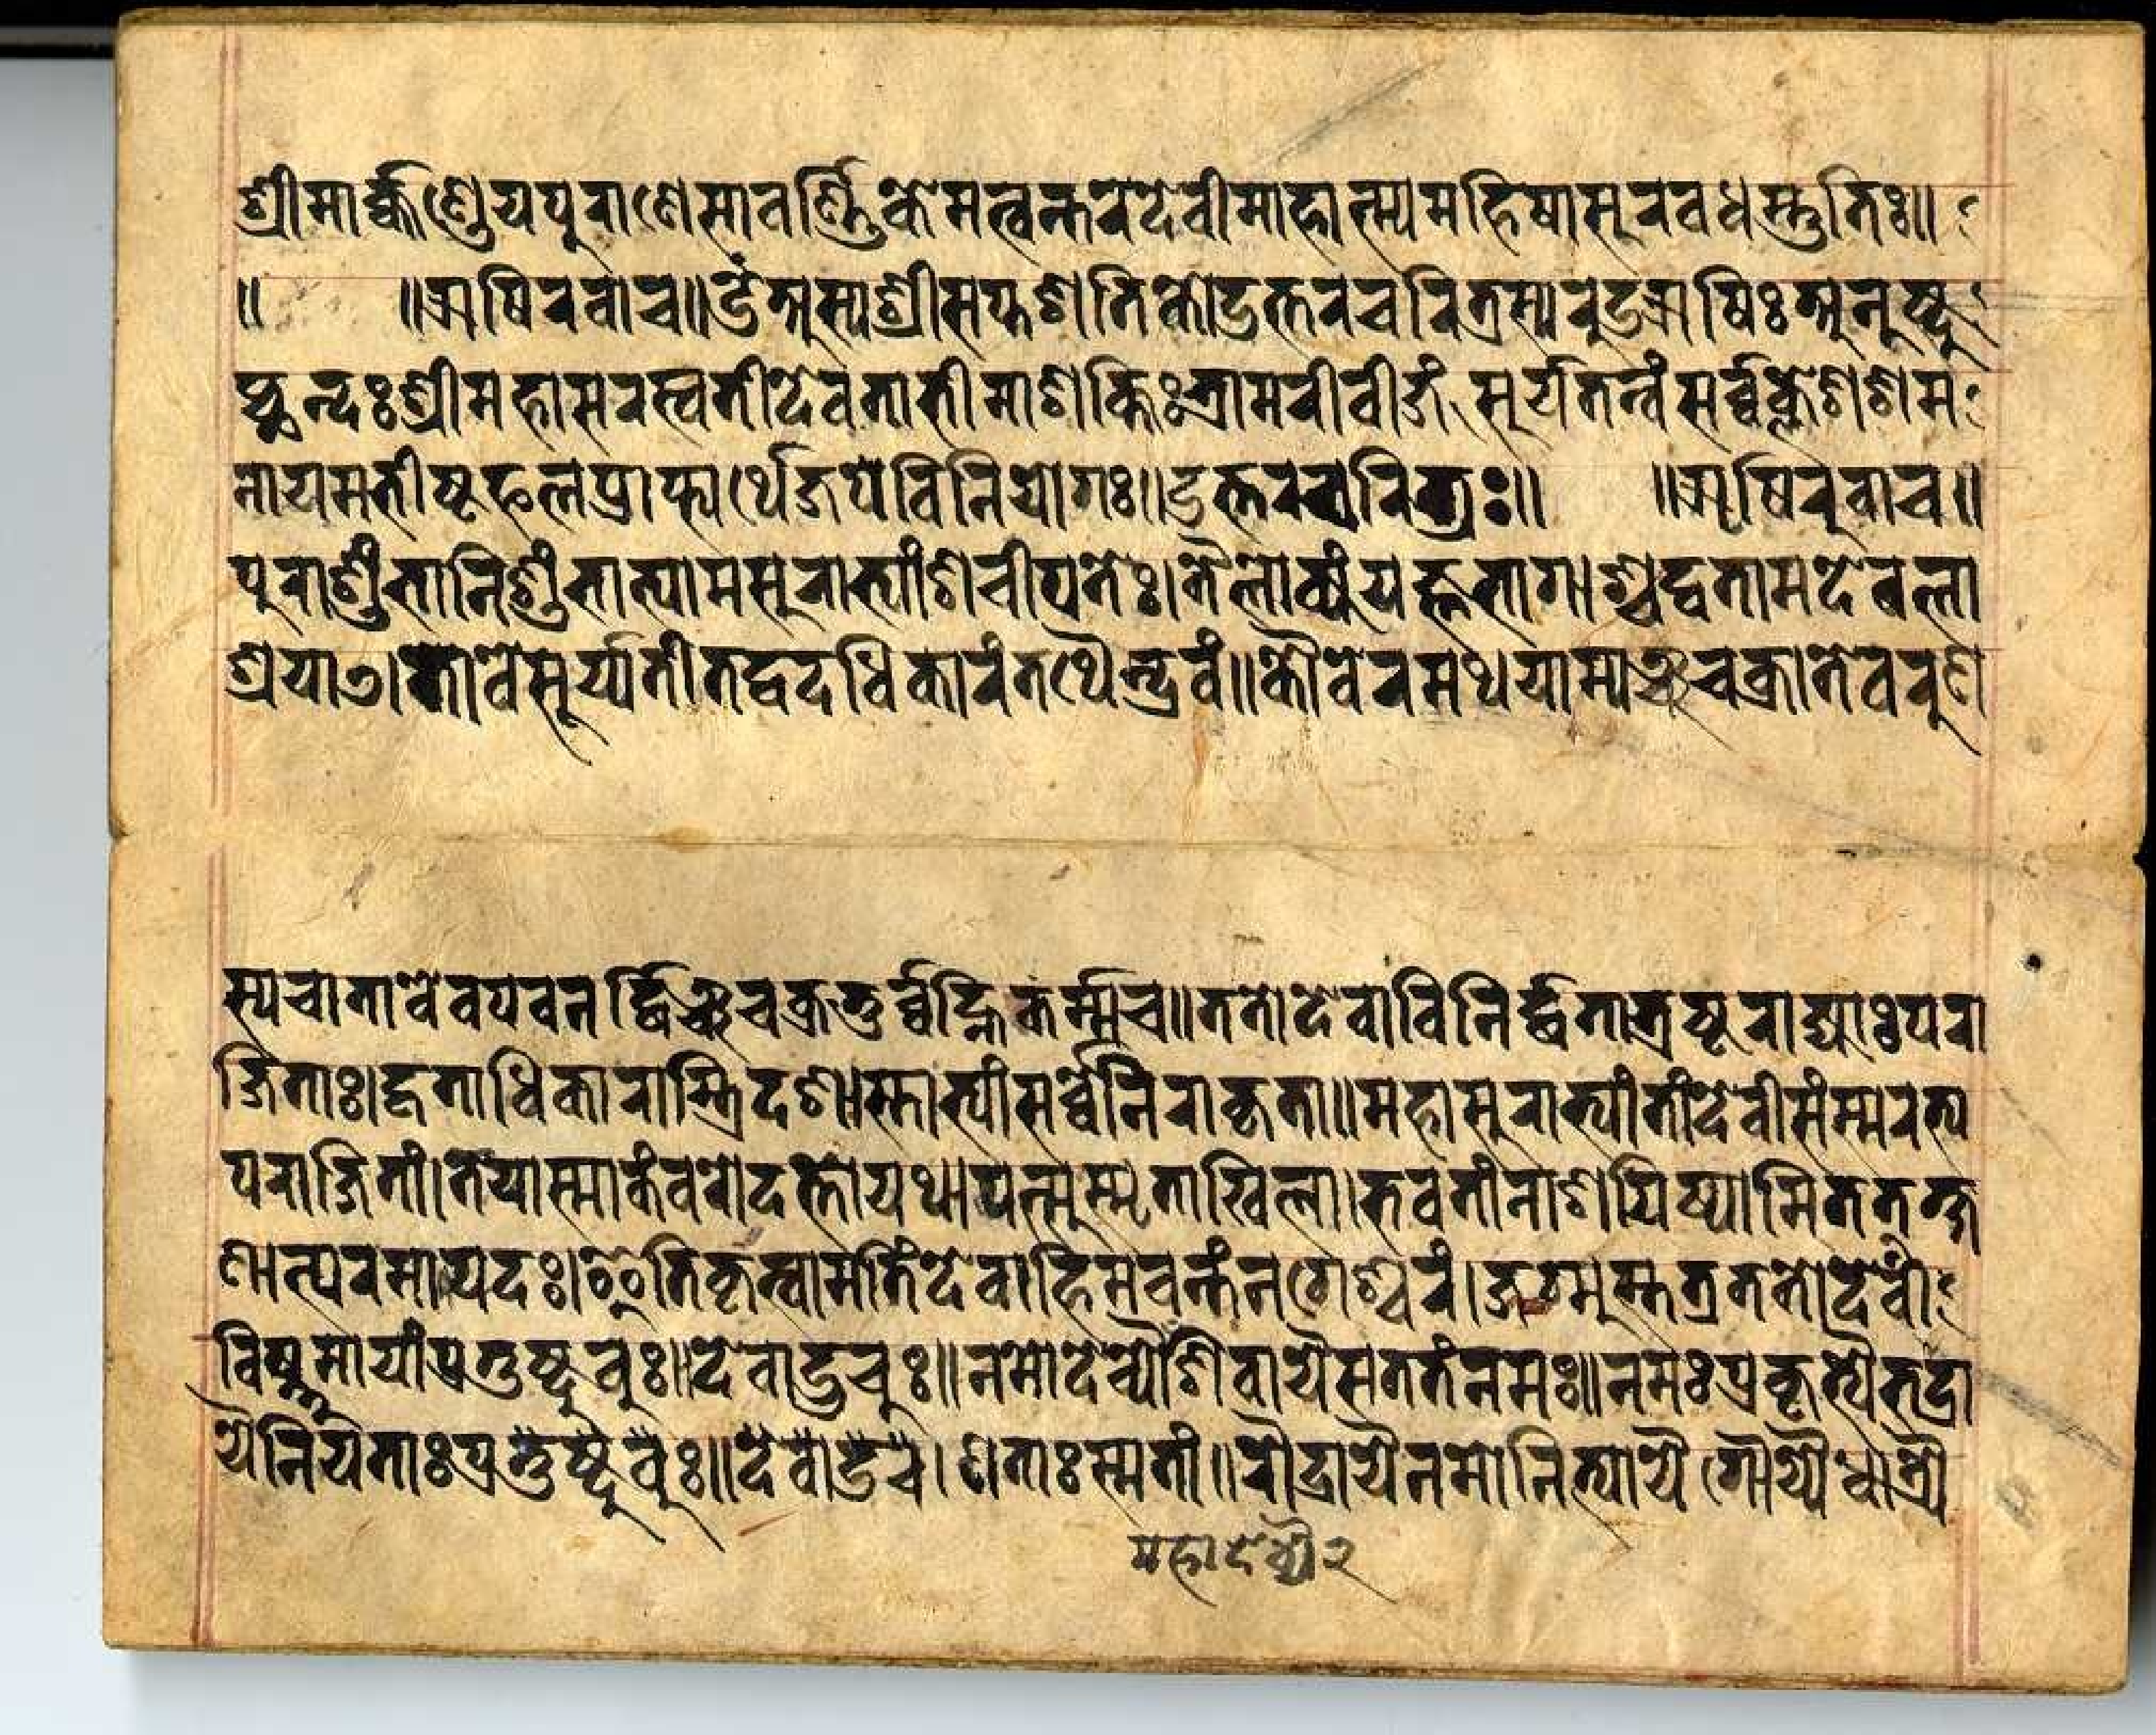 श्रीमार्क्कण्डेयपुराणेसावर्ण्णिकेमत्वन्तरेदेवीमाहात्म्यमहिषासुरवधस्तुतिः॥
॥ ॥ऋषिरवाच॥उंअस्यश्रीसप्तशतिकोउत्तरचरित्रस्यरुद्रऋषिःअनुष्टु
प्छन्दःश्रीमहासरस्वतीदेवताभीमाशक्तिःभ्रामरीवीजं सूर्यतत्वंसर्व्वक्लेशशम
नायमभीष्टफलप्राप्त्यर्थेजपेविनियोगः॥उत्तरचरित्रः॥ ॥ऋषिरुवाच॥
पुराशुंभानिशुंभाभ्यामसुराभ्यांशचीपतेः।त्रैलोक्यंयज्ञभागाश्चहृतामदेवला
श्रयात्।तावेसूर्य्यतीतद्वदधिकारंतथैन्द्रवं॥कौवेरमथयाम्यञ्चचक्रातेवरुण
स्यचातावेवपवनर्द्धिञ्चचक्रतुर्व्वह्निकर्म्मच॥ततोदेवाविनिर्द्धूताभ्रष्टराज्याःपरा
जिताः।हृताधिकारास्त्रिदशास्ताभ्यांसर्व्वेनिराकृता॥महासुराभ्यांतांदेवींसंस्मरन्त्य
पराजितां।तयास्माकंवरोदत्तोयथापत्सुस्मृताखिला।भवतांनाशयिष्यामितत्क्ष
णात्परमापदः।इतिकृत्वामतिंदेवाहिमवन्तंनगेश्वरं।जग्मुस्तत्रततोदेवीं
विष्णुमायांप्रतुष्टुवुः॥देवाउचुः॥नमोदेव्यैशिवायैसततंनमः॥नमःप्रकृत्यैभद्रा
यैनियताःप्रतुष्टुवुः॥देवाउच।णताःस्मतां॥रौद्रायैनमोनित्यायैगौर्य्यैधात्र्यै
महादेव्यै२